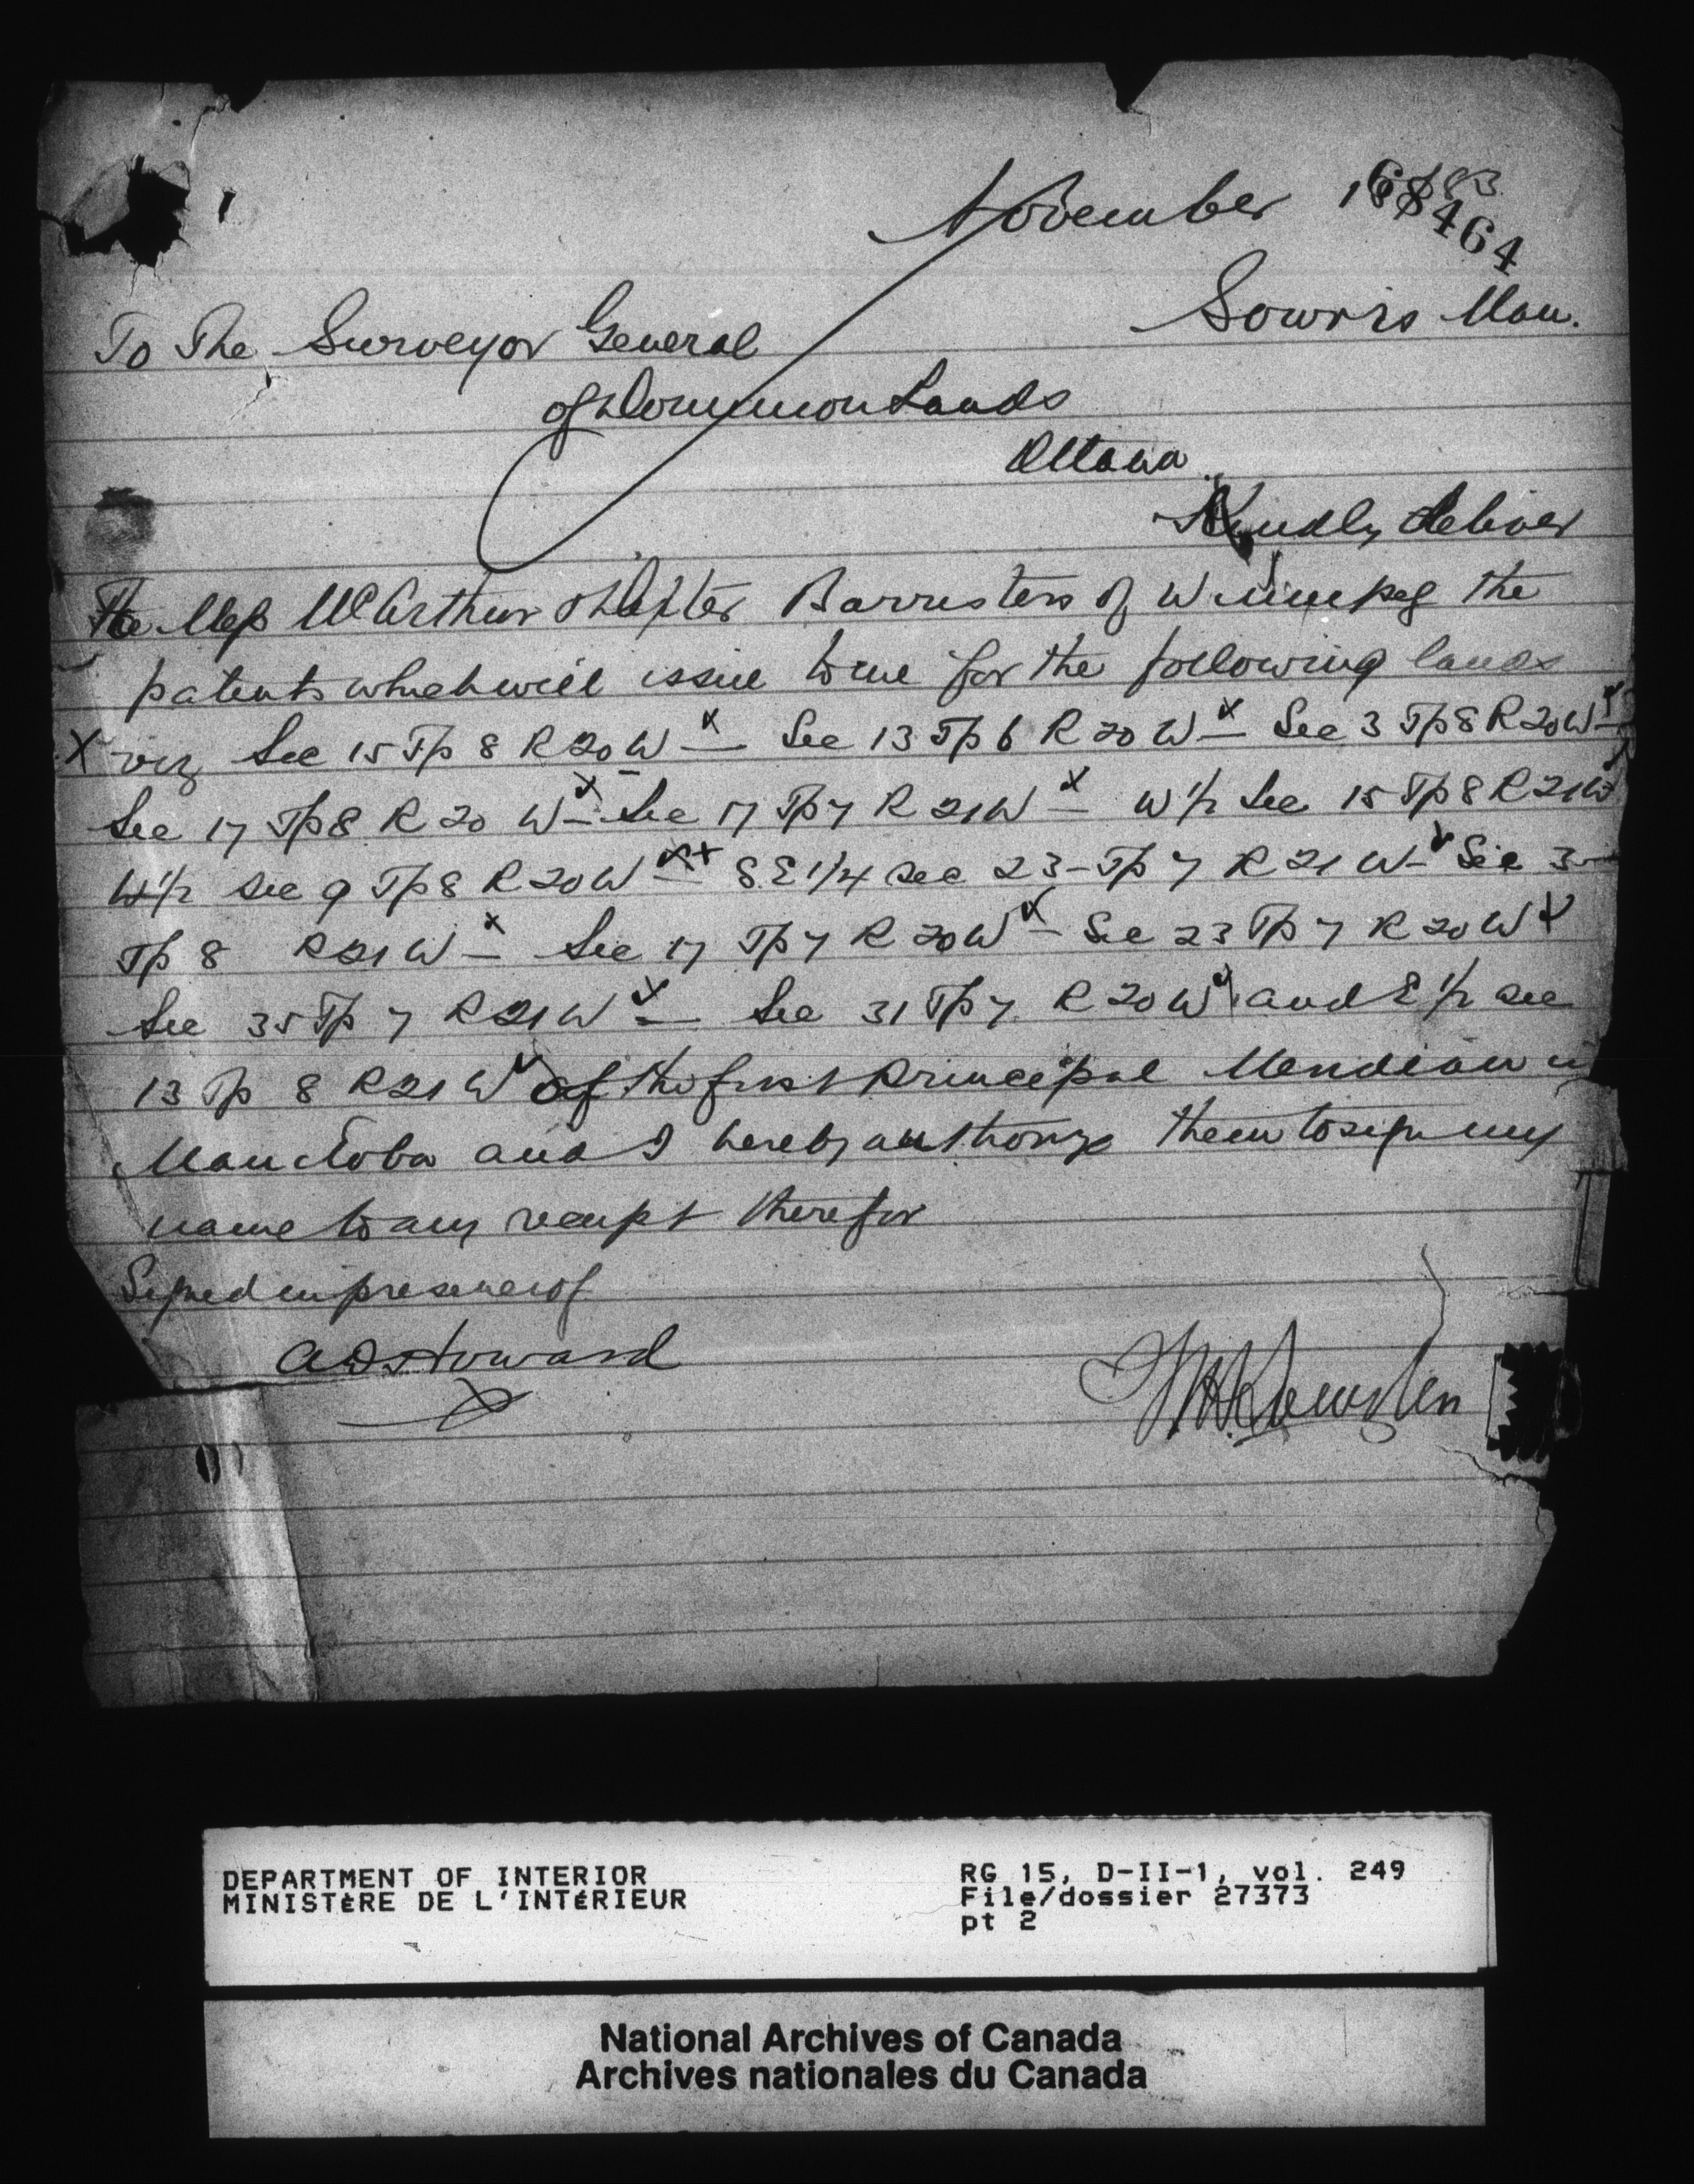 November 1883
68464
Sowris Man.
To The Surveyor General
of Dominion Lands
Ottawa
Kindly deliver
To Mess McArthur & Dexter Barristers of Winnipeg the
patents which will issue to me for the following lands
X viz Sec 15 Tp 8 R 20 W x — Sec 13 Tp 6 R 20 W x — Sec 3 Tp 8 R 20 W x —
Sec 17 Tp 8 R 20 W x — Sec 17 Tp 7 R 21 W x — W 1/2 Sec 15 Tp 8 R 21 W
W 1/2 sec 9 Tp 8 R 20 W x x — S.E 1/4 sec 23 - Tp 7 R 21 W - x Sec 3 -
Tp 8 R 21 W x — Sec 17 Tp 7 R 20 W x — Sec 23 Tp 7 R 20 W x
Sec 35 Tp 7 R 21 W x — Sec 31 Tp 7 R 20 W x and E 1/2 sec
13 Tp 8 R 21 W x of the first Principal Meridian in
Manitoba and I hereby authorize them to sign my
name to any receipt therefor
Signed in presence of
Howard
DEPARTMENT OF INTERIOR
MINISTÈRE DE L'INTÉRIEUR
RG 15, D-II-1, vol. 249
File/dossier 27373
pt 2
National Archives of Canada
Archives nationales du Canada